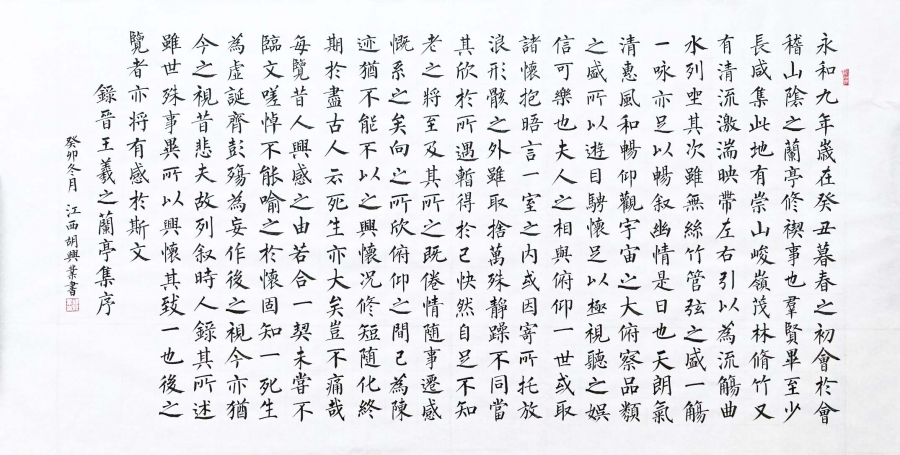 永和九年歲在癸丑暮春之初會於會
稽山陰之蘭亭修禊事也羣賢畢至少
長咸集此地有崇山峻嶺茂林脩竹又
有清流激湍映帶左右引以為流觴曲
水列坐其次雖無絲竹管弦之盛一觴
一咏亦足以暢叙幽情是日也天朗氣
清惠風和暢仰觀宇宙之大俯察品類
之盛所以遊目騁懷足以極視聽之娛
信可樂也夫人之相與俯仰一世或取
諸懷抱晤言一室之内或因寄所托放
浪形骸之外雖取捨萬殊靜躁不同當
其欣於所遇暫得於己快然自足不知
老之將至及其所之既倦情隨事遷感
慨系之矣向之所欣俯仰之間已為陳
迹猶不能不以之興懷况修短隨化終
期於盡古人云死生亦大矣豈不痛哉
每覽昔人興感之由若合一契未嘗不
臨文嗟悼不能喻之於懷固知一死生
為虛誕齊彭殤為妄作後之視今亦猶
今之視昔悲夫故列叙時人錄其所述
雖世殊事異所以興懷其致一也後之
覽者亦将有感於斯文
錄晉王羲之蘭亭集序
癸卯冬月 江西胡興業書